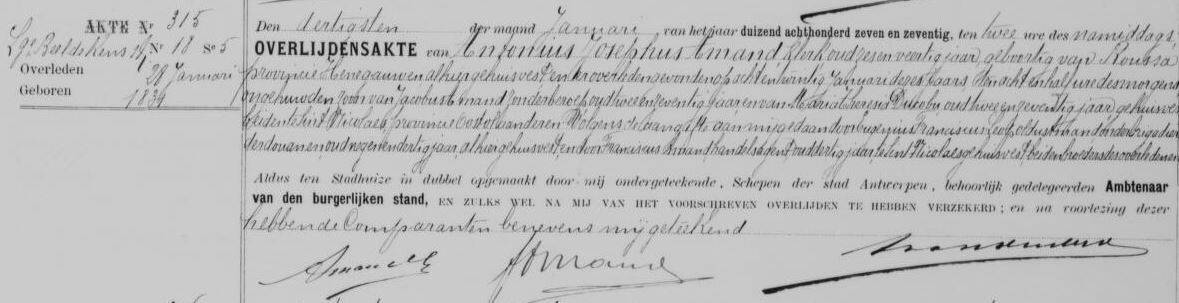 AKTE Nr 315
Nr 18 Sn 5
Overleden 28 Januari
Geboren 1834
Den dertigsten der maand Januari van het jaar duizend achthonderd zeven en zeventig, ten twee ure des namiddags,
OVERLIJDENSAKTE van Antonius Josephus Amand, klerk oud zesenveertig jaar, geboortig van
provincie Henegauwen alhier gehuisvest en er overleden gevonden op achtentwintig Januari dezes jaars ten acht en half ure des morgens
ongehuwden zoon van Jacobus Amand zonder beroep oud twee en zeventig jaar en van Maria Theresia oud twee en zeventig jaar, gehuisvest
beiden te Sint Nicolaes provincie Oostvlaanderen Volgens de aangifte aan mij gedaan door Eugenius Franciscus Leopoldus Amand onderbrigadier
der douanen, oud negenendertig jaar, alhier gehuisvest, en door Franciscus Amand handelsagent, oud dertig jaar, te Sint Nicolaes gehuisvest, beiden broeders des overledenen
Aldus ten Stadhuize in dubbel opgemaakt door mij ondergeteekende, Schepen der stad Antwerpen, behoorlijk gedelegeerden Ambtenaar
van den burgerlijken stand, EN ZULKS WEL NA MIJ VAN HET VOORSCHREVEN OVERLIJDEN TE HEBBEN VERZEKERD; en na voorlezing dezer
hebben de Comparanten benevens mij geteekend